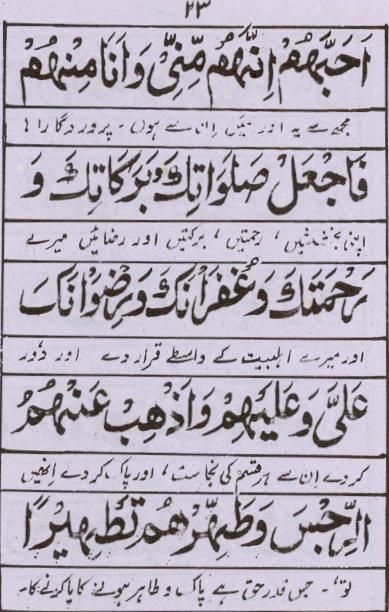 ۲۳
اَحَبَّهُمْ اِنَّهُمْ مِّنِّیْ وَاَنَا مِنْهُمْ
مجھ سے یہ اور میَں اِن سے ہوں ۔ پروردگارا !
فَاجْعَلْ صَلَوَاتِكَ وَبَرَكَاتِكَ وَ
اپنی بخششیں ، رحمتیں ، برکتیں اور رضائیں میرے
رَحْمَتَكَ وَغُفْرَانَكَ وَرِضْوَانَكَ
اور میرے اہلبیت کے واسطے قرار دے اور دُور
عَلَیَّ وَعَلَيْهِمْ وَاَذْهِبْ عَنْهُمُ
کردے اِن سے ہر قسم کی نجاست ، اور پاک کردے اِنھیں
الرِّجْسَ وَطَهِّرْهُمْ تَطْهِيْرًا
تو ، ۔ جس قدر حق ہے پاک و طاہر ہونے کا پاکرنے کا ۔